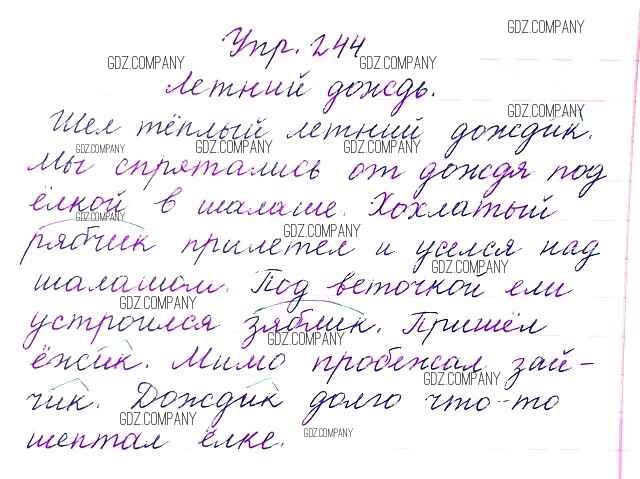 Упр. 244
GDZ.COMPANY
GDZ.COMPANY GDZ.COMPANY
Летний дождь.
GDZ.COMPANY
Шёл тёплый летний дождик.
GDZ.COMPANY GDZ.COMPANY GDZ.COMPANY
Мы спрятались от дождя под
ёлкой в шалаше. Хохлатый
GDZ.COMPANY GDZ.COMPANY
рябчик прилетел и уселся над
GDZ.COMPANY
шалашом. Под веточкой ели
GDZ.COMPANY
устроился зяблик. Пришёл
GDZ.COMPANY
ёжик. Мимо пробежал зай-
GDZ.COMPANY
чик. Дождик долго что-то
GDZ.COMPANY GDZ.COMPANY
шептал ёлке.